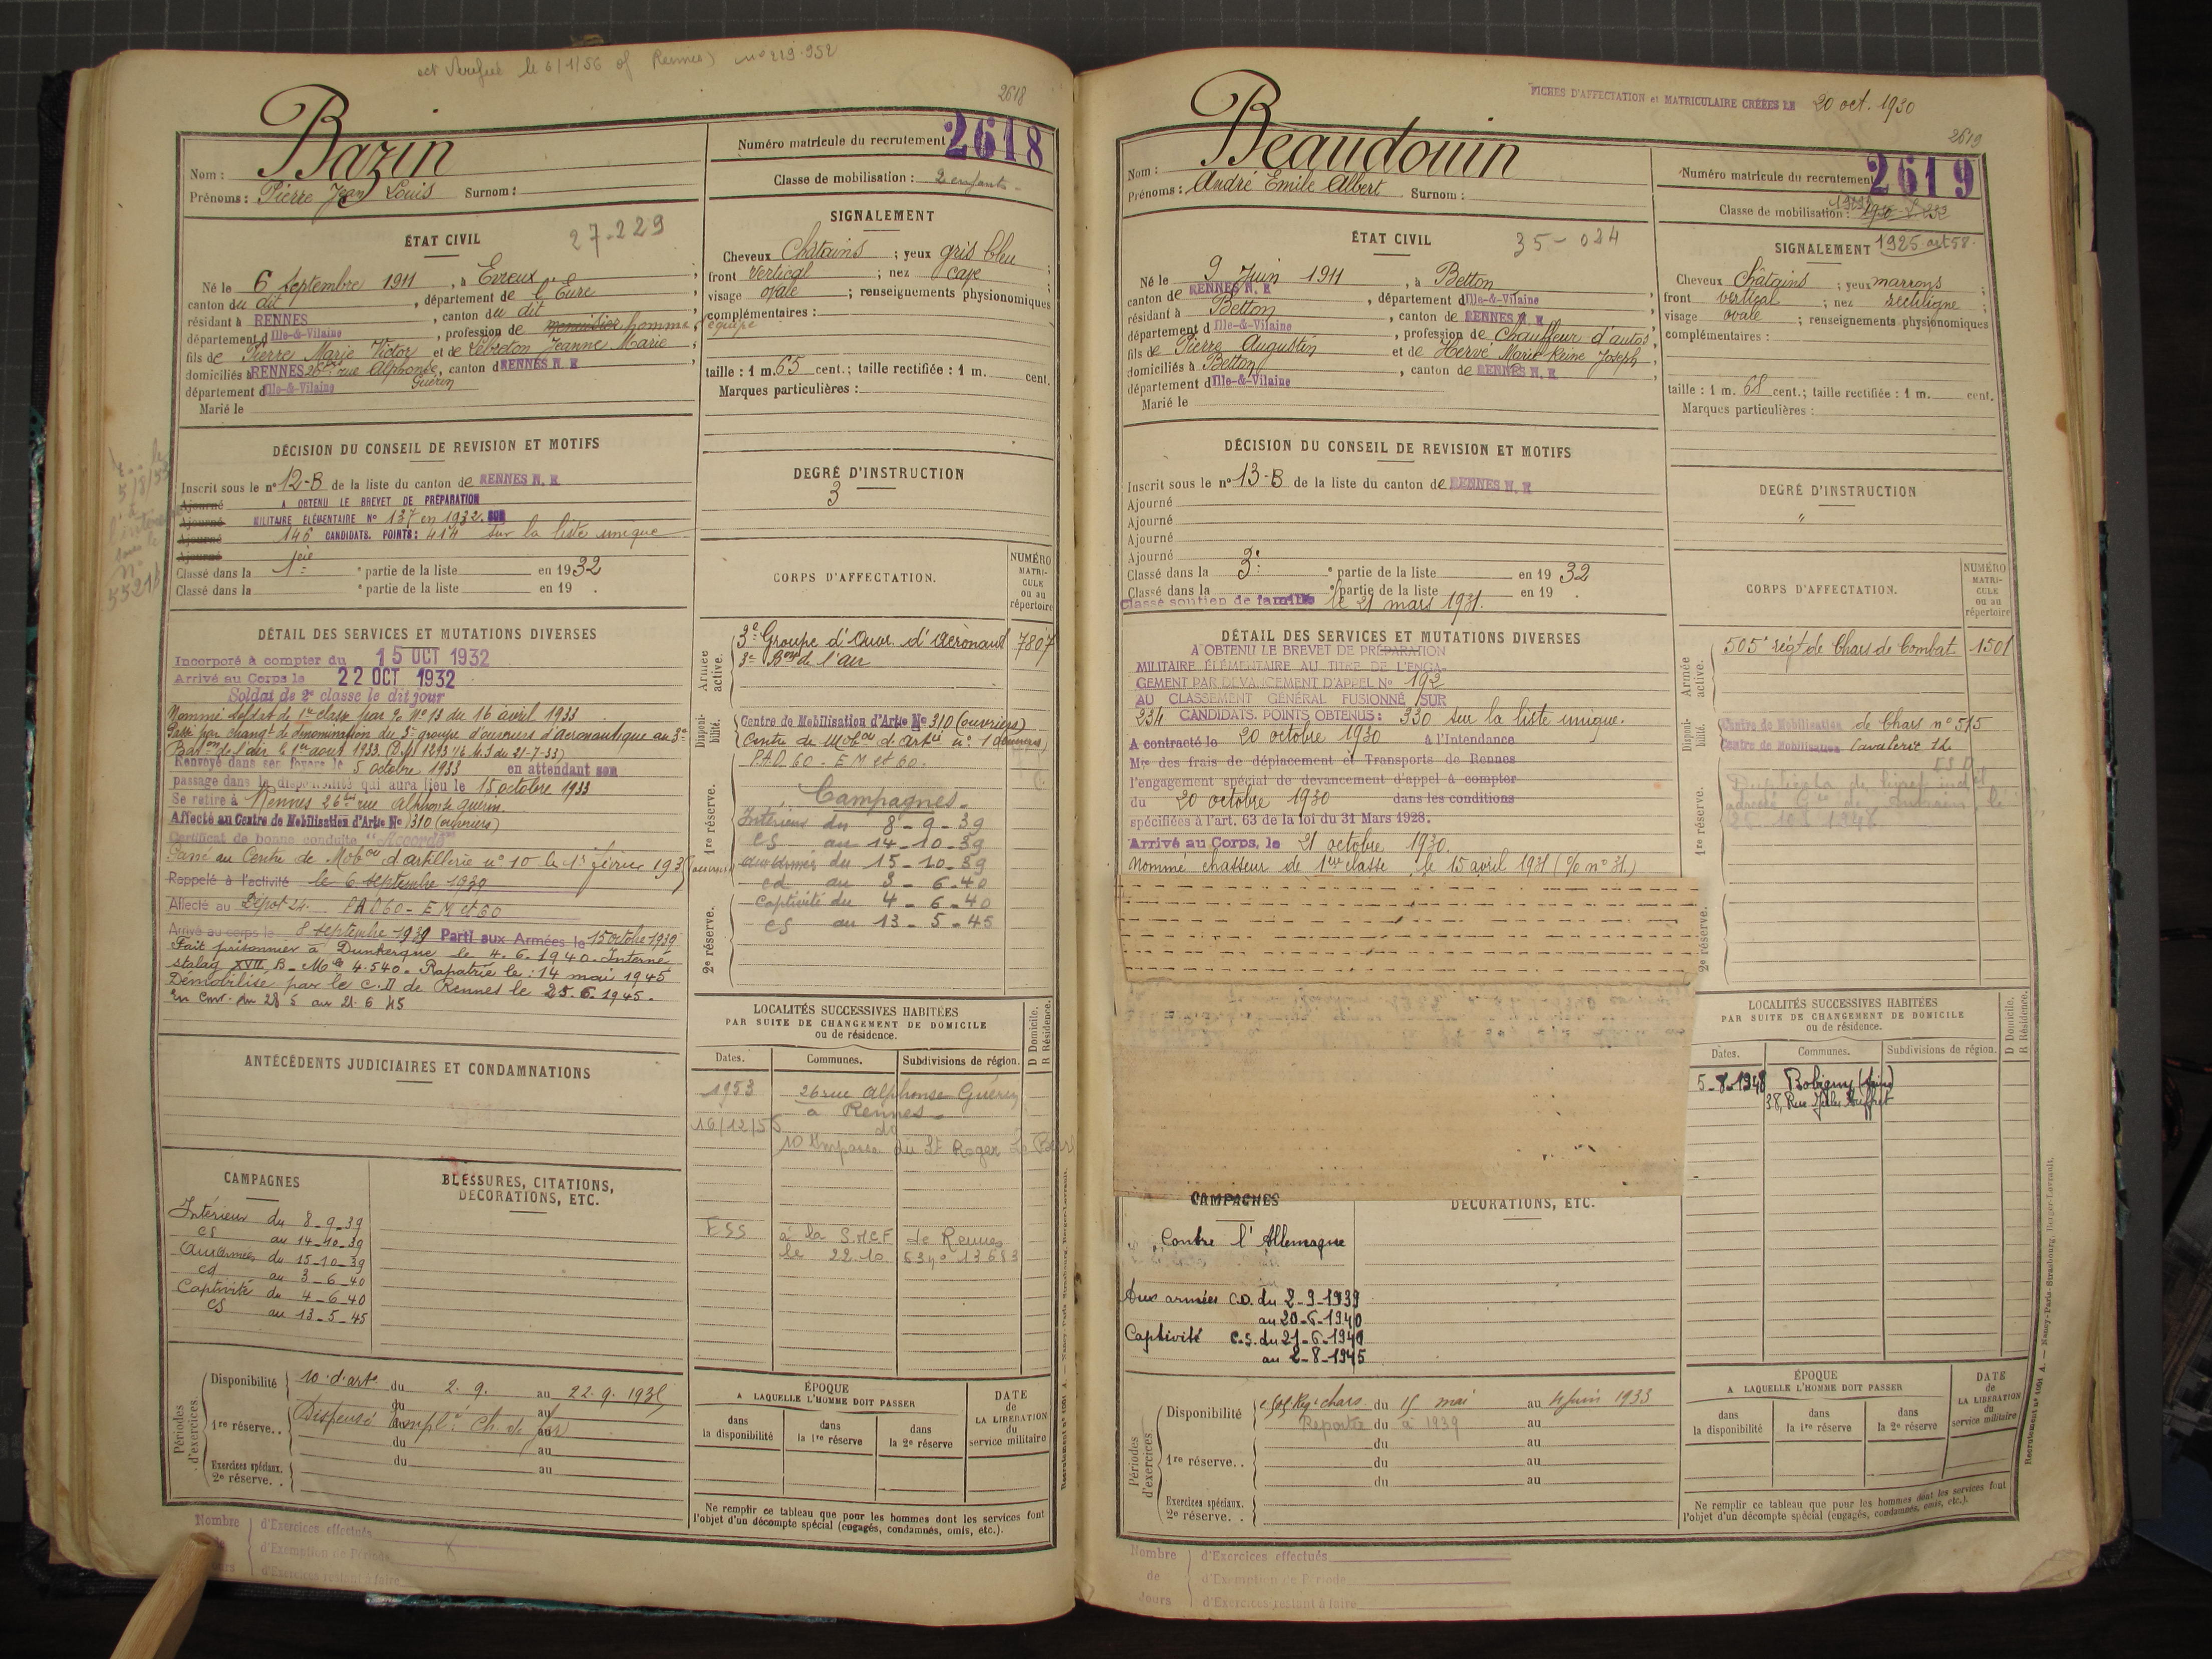 act Verifié le 6/1/56 of Rennes n° 219.952
2618
Bazin
Nom :
Prénoms : Pierre Jean Louis Surnom :
Numéro matricule du recrutement 2618
Classe de mobilisation : 2 enfants
ÉTAT CIVIL
27-229
Né le 6 Septembre 1911, à Evreux
canton du dit, département de l'Eure
résidant à RENNES, canton du dit
département d'Ille-&-Vilaine, profession de menuisier homme d'équipe
fils de Pierre Marie Victor et de Lebreton Jeanne Marie
domiciliés à RENNES 26 bis rue Alphonse Guérin, canton de RENNES N. E
département d'Ille-&-Vilaine
Marié le
SIGNALEMENT
Cheveux Châtains ; yeux gris bleu ;
front Vertical ; nez cave
visage ovale ; renseignements physionomiques
complémentaires :
taille : 1 m. 65 cent.; taille rectifiée : 1 m. cent.
Marques particulières :
DÉCISION DU CONSEIL DE REVISION ET MOTIFS
Inscrit sous le n° 12-B de la liste du canton de RENNES N. E
Ajourné A OBTENU LE BREVET DE PRÉPARATION
Ajourné MILITAIRE ÉLÉMENTAIRE N° 137 en 1932. SUR
Ajourné 146 CANDIDATS. POINTS : 414 sur la liste unique
Ajourné
Classé dans la 1ère partie de la liste en 1932
Classé dans la partie de la liste en 19 .
DEGRÉ D'INSTRUCTION
3
CORPS D'AFFECTATION.
NUMÉRO MATRICULE ou au répertoire
Armée active.
3e Groupe d'Ouvr. d'aéronaut 7807
3e Bon de l'air
Disponibilité.
Centre de Mobilisation d'Artie No 310 (ouvriers)
Centre de Mobon d'artie n° 10 (ouvriers)
1re réserve.
P.A.D 60 - E M et 60.
Campagnes
Intérieur du 8-9-39
CS au 14-10-39
aux armées du 15-10-39
cd au 3-6-40
Captivité du 4-6-40
CS au 13-5-45
2e réserve.
DÉTAIL DES SERVICES ET MUTATIONS DIVERSES
Incorporé à compter du 15 OCT 1932
Arrivé au Corps le 22 OCT 1932
Soldat de 2e classe le dit jour
Nommé soldat de 1re classe par % N° 13 du 16 avril 1933
Passé par changt de dénomination du 3e groupe d'ouvriers d'aéronautique au 3e
Baton de l'air le 1er août 1933
Renvoyé dans ses foyers le 5 octobre 1933 en attendant son
passage dans la disponibilité qui aura lieu le 15 octobre 1933
Se retire à Rennes 26 bis rue Alphonse Guérin.
Affecté au Centre de Mobilisation d'Artie No 310 (ouvriers)
Certificat de bonne conduite "Accordé"
Passé au Centre de Mobon d'artillerie n° 10 le 1er février 193 (ouvriers)
Rappelé à l'activité le 6 septembre 1939
Affecté au Dépôt 24. PAD 60 - E M et 60
Arrivé au corps le 8 septembre 1939 Parti aux Armées le 15 octobre 1939
Fait prisonnier à Dunkerque le 4.6.1940. Interné
stalag XVII B - Mle 4.540. Rapatrié le : 14 mai 1945
Démobilisé par le C.D de Rennes le 25.6.1945.
ANTÉCÉDENTS JUDICIAIRES ET CONDAMNATIONS
LOCALITÉS SUCCESSIVES HABITÉES
PAR SUITE DE CHANGEMENT DE DOMICILE
ou de résidence.
D Domicile. R Résidence.
Dates. Communes. Subdivisions de région.
1953 26 rue Alphonse Guérin
à Rennes
16/12/55 do
10 Impasse du St Roger
ESS à la SNCF de Rennes
le 22.10. 53 n° 13683
CAMPAGNES
Intérieur du 8-9-39
CS au 14-10-39
Aux armées du 15-10-39
cd au 3-6-40
Captivité du 4-6-40
CS au 13-5-45
BLESSURES, CITATIONS,
DÉCORATIONS, ETC.
Périodes d'exercices.
Disponibilité 10e d'arte du 2.9. au 22.9.1935
1re réserve. . Dispensé Empl. Ch. de fer
du au
Exercices spéciaux.
2e réserve. .
ÉPOQUE
A LAQUELLE L'HOMME DOIT PASSER
dans la disponibilité
dans la 1re réserve
dans la 2e réserve
DATE de LA LIBÉRATION du service militaire
Ne remplir ce tableau que pour les hommes dont les services font
l'objet d'un décompte spécial (engagés, condamnés, omis, etc.).
Nombre de Jours
d'Exercices effectués
d'Exemption de Période
d'Exercices restant à faire
FICHES D'AFFECTATION et MATRICULAIRE CRÉÉES LE 20 oct. 1930
2619
Beaudouin
Nom :
Prénoms : André Emile Albert Surnom :
Numéro matricule du recrutement 2619
Classe de mobilisation :
1925 art 58.
ÉTAT CIVIL
35-024
Né le 9 Juin 1911, à Betton
canton de RENNES N. E, département d'Ille-&-Vilaine
résidant à Betton, canton de RENNES N. E
département d'Ille-&-Vilaine, profession de Chauffeur d'autos
fils de Pierre Augustin et de Hervé Marie Reine Joseph
domiciliés à Betton, canton de RENNES N. E
département d'Ille-&-Vilaine
Marié le
SIGNALEMENT
Cheveux Châtains ; yeux marrons ;
front vertical ; nez rectiligne ;
visage ovale ; renseignements physionomiques
complémentaires :
taille : 1 m. 68 cent.; taille rectifiée : 1 m. cent.
Marques particulières :
DÉCISION DU CONSEIL DE REVISION ET MOTIFS
Inscrit sous le n° 13-B de la liste du canton de RENNES N. E
Ajourné
Ajourné
Ajourné
Ajourné
Classé dans la 3e partie de la liste en 1932
Classé dans la partie de la liste en 19 .
Classé soutien de famille le 21 mars 1931.
DEGRÉ D'INSTRUCTION
"
CORPS D'AFFECTATION.
NUMÉRO MATRICULE ou au répertoire
Armée active.
505e régt de Chars de Combat 1501
Disponibilité.
Centre de Mobilisation de Chars n° 515
Centre de Mobilisation Cavalerie 11
1re réserve.
2e réserve.
DÉTAIL DES SERVICES ET MUTATIONS DIVERSES
A OBTENU LE BREVET DE PRÉPARATION
MILITAIRE ÉLÉMENTAIRE AU TITRE DE L'ENGA-
GEMENT PAR DEVANCEMENT D'APPEL N° 192
AU CLASSEMENT GÉNÉRAL FUSIONNÉ SUR
234 CANDIDATS. POINTS OBTENUS : 330 sur la liste unique.
A contracté le 20 octobre 1930 à l'Intendance
Mre des frais de déplacement et Transports de Rennes
l'engagement spécial de devancement d'appel à compter
du 20 octobre 1930 dans les conditions
spécifiées à l'art. 63 de la loi du 31 Mars 1928.
Arrivé au Corps, le 21 octobre 1930.
Nommé chasseur de 1ère classe le 15 avril 1931 (% n° 31.)
LOCALITÉS SUCCESSIVES HABITÉES
PAR SUITE DE CHANGEMENT DE DOMICILE
ou de résidence.
D Domicile. R Résidence.
Dates. Communes. Subdivisions de région.
5-8-1948 Bobigny (Seine)
38, Rue Jules Auffret
CAMPAGNES
Contre l'Allemagne
Aux armées C.D. du 2-9-1939
au 20-6-1940
Captivité C.S. du 21-6-1940
au 2-8-1945
DÉCORATIONS, ETC.
Périodes d'exercices.
Disponibilité du 15 mai au 4 juin 1933
Reportée du à 1939
du au
1re réserve. . du au
du au
Exercices spéciaux.
2e réserve. .
ÉPOQUE
A LAQUELLE L'HOMME DOIT PASSER
dans la disponibilité
dans la 1re réserve
dans la 2e réserve
DATE de LA LIBÉRATION du service militaire
Ne remplir ce tableau que pour les hommes dont les services font
l'objet d'un décompte spécial (engagés, condamnés, omis, etc.).
Nombre de Jours
d'Exercices effectués
d'Exemption de Période
d'Exercices restant à faire